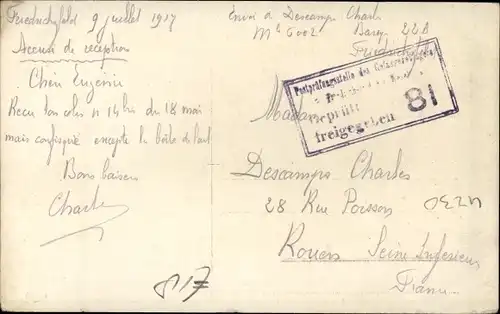 Friedrichsfeld 9 juillet 1917
Accusé de réception
Chère Eugénie
Recu ton colis n 14 du 18 mai
mais confisqué excepté la boîte de lait
Bons baisers
Charles
Envoi de Descamps Charles
Mle 6002 Baraq. 22B
Friedrichsfeld
Postprüfungsstelle des Gefangenenlagers
Geprüft
freigegeben 81
Madame
Descamps Charles
28 Rue Poisson
Rouen Seine Inférieure
France
817